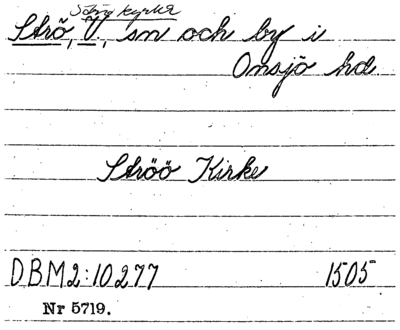 Strö, V., sn och by i
Onsjö hd
Ströö Kirke
DBM2:10277 1505
Nr 5719.